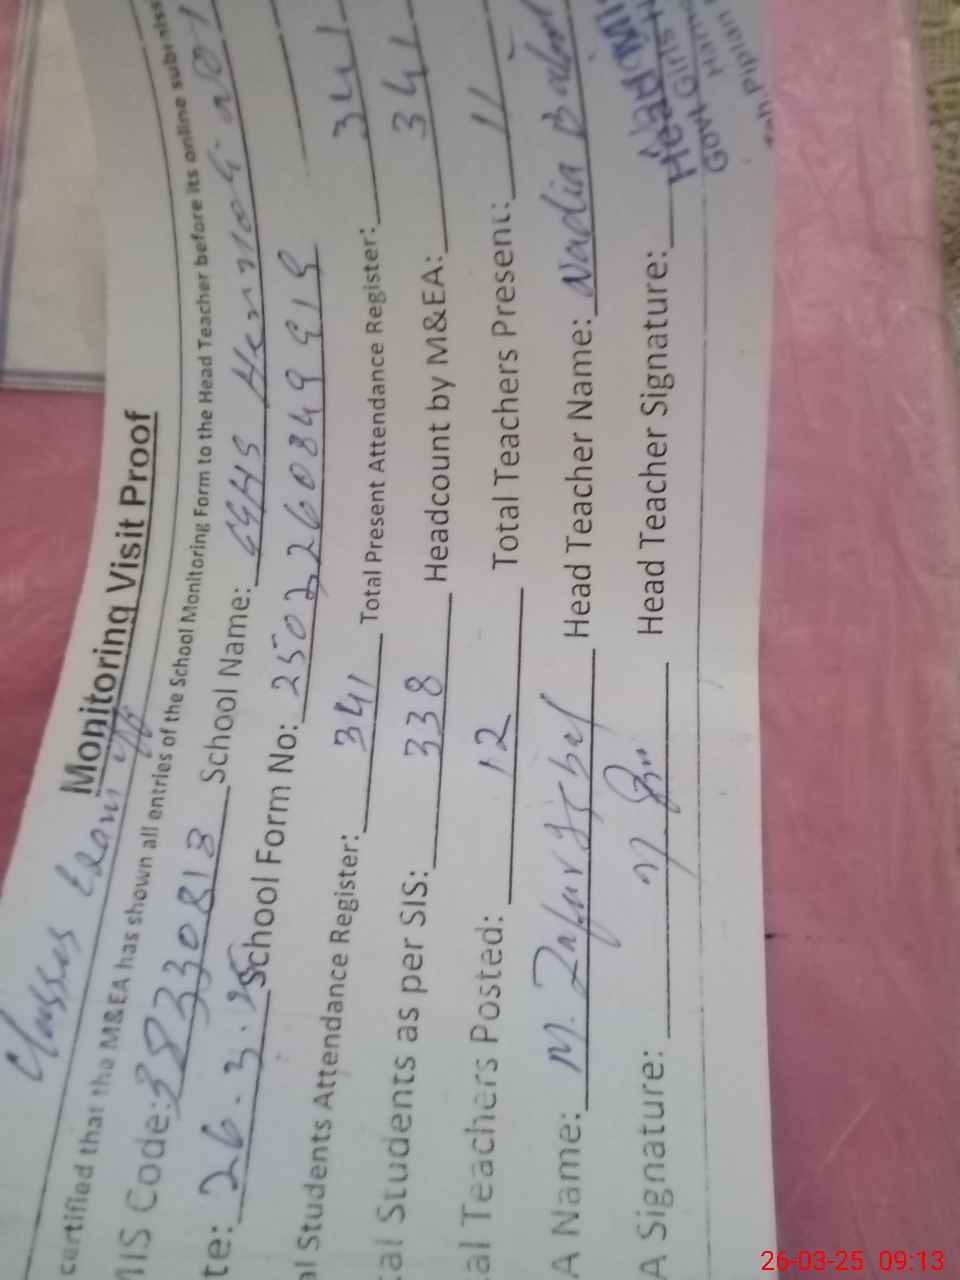 Classes
Monitoring Visit Proof
certified that the M&EA has shown all entries of the School Monitoring Form to the Head Teacher before its online submiss
MIS Code: 38330813 School Name: GGHS
te: 26.3.25 School Form No: 2503260849919
al Students Attendance Register: 341 Total Present Attendance Register: 341
tal Students as per SIS: 338 Headcount by M&EA: 341
al Teachers Posted: 12 Total Teachers Present: 11
A Name: M. Zafar Iqbal Head Teacher Name: Nadia
A Signature: Head Teacher Signature:
Head
Govt Girls
Piplan
26-03-25 09:13